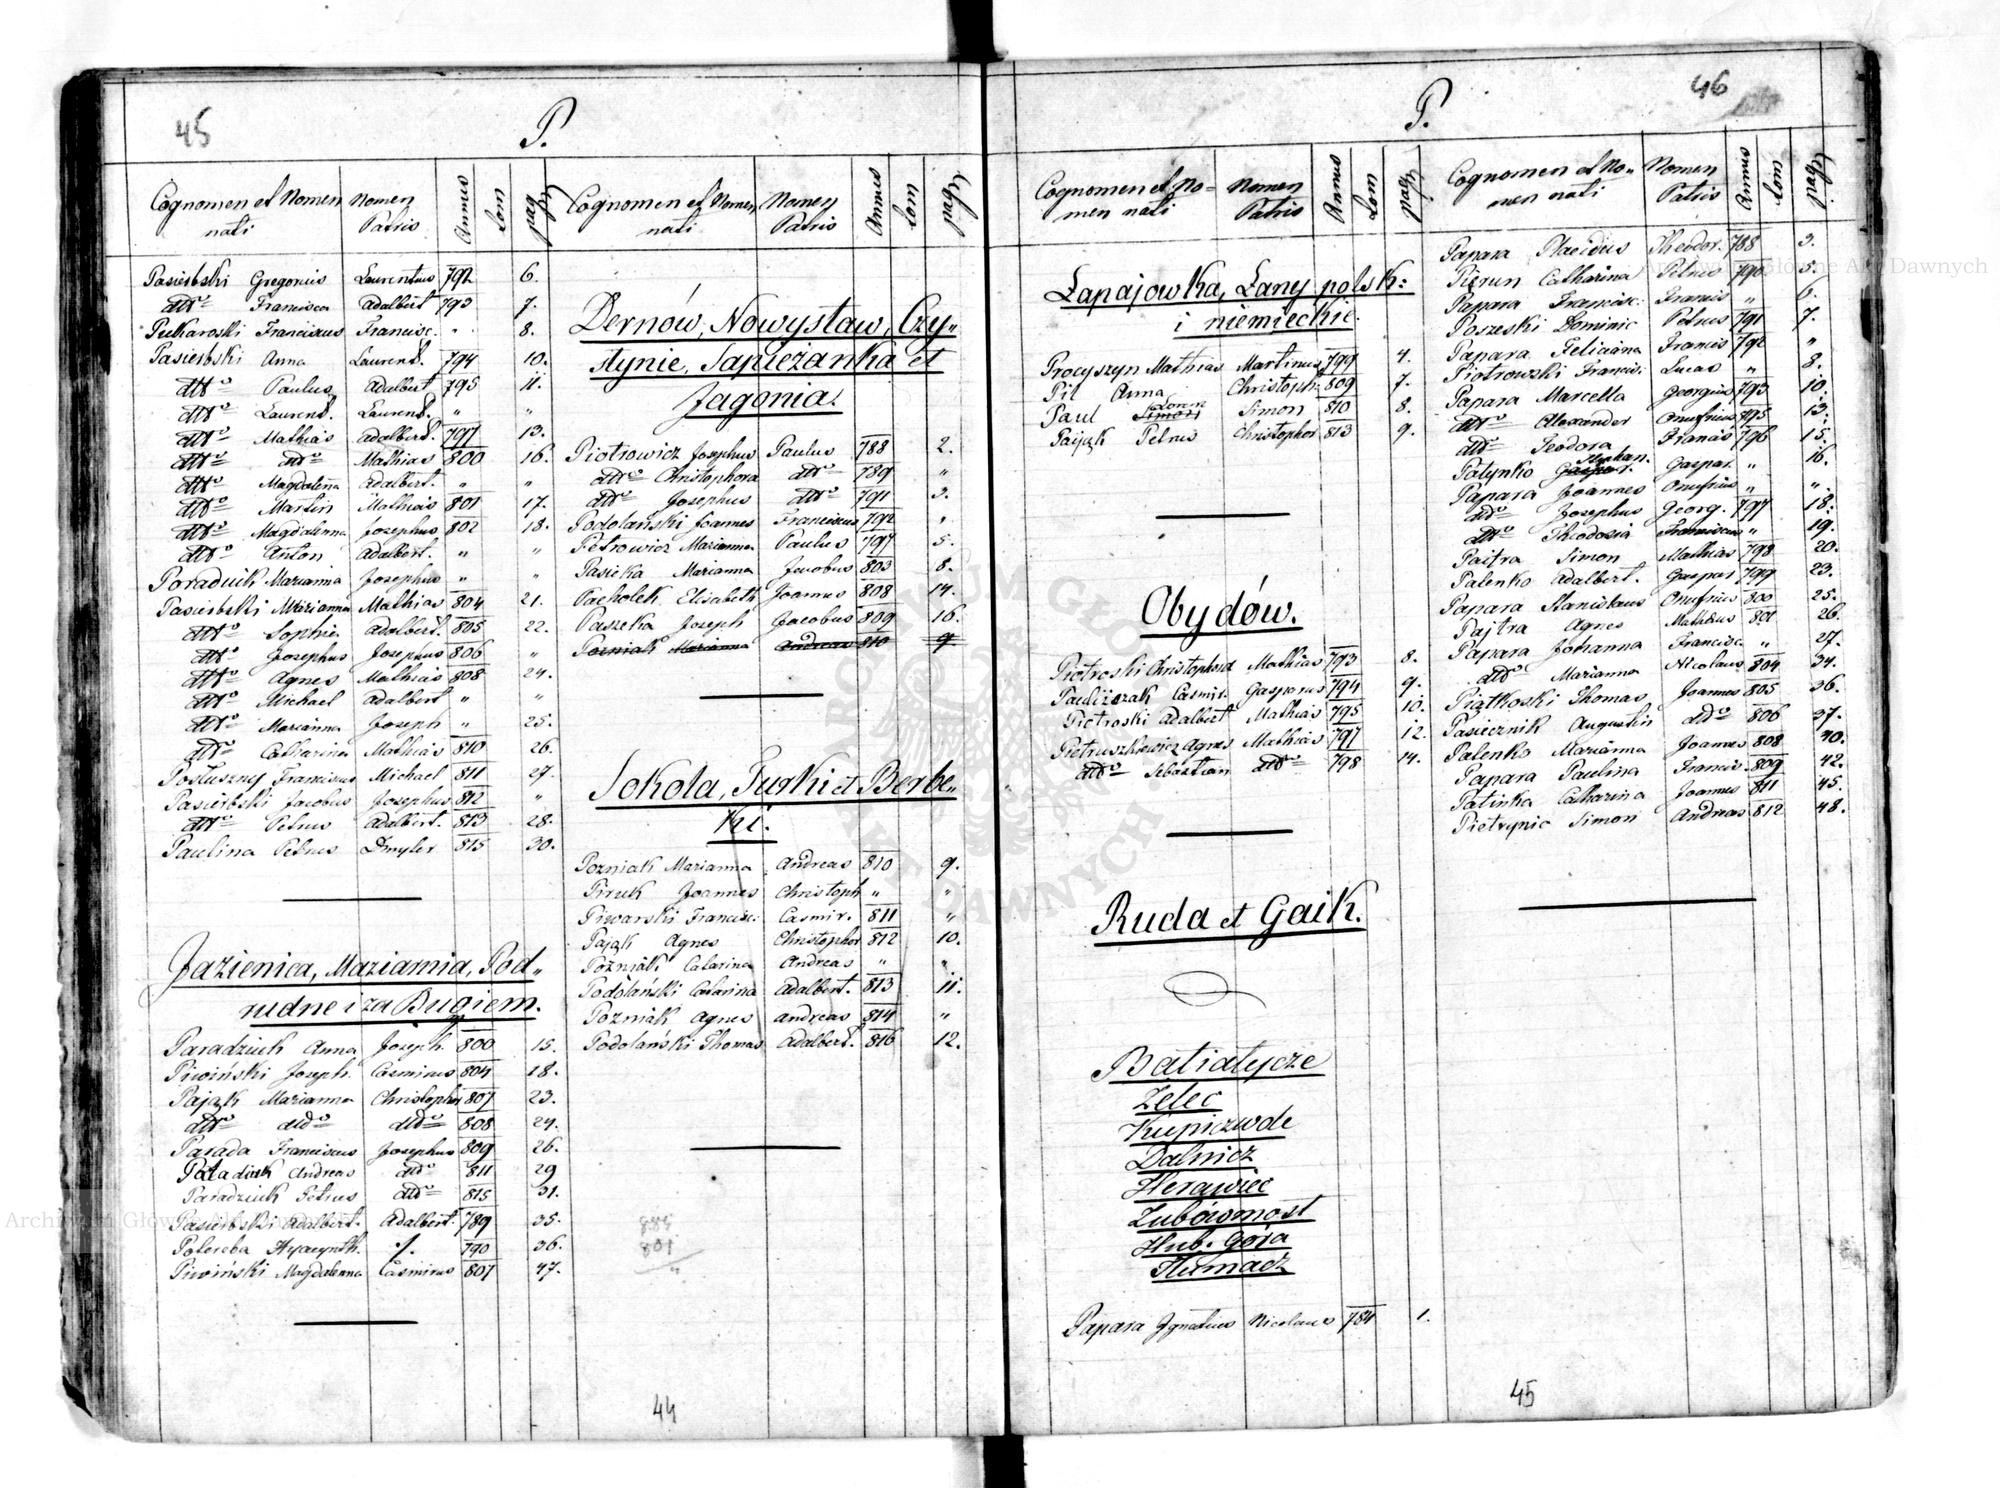 45
P.
Cognomen et Nomen nati
Nomen Patris
Annus
tom
pag
Pasierbski Gregorius Laurentius 792 6.
dtto Francisca Adalbert 793 7.
Piekarski Franciscus Francisc. " 8.
Pasierbski Anna Laurent. 794 10.
dtto Paulus Adalbert 795 11.
dtto Laurent. Laurent. " "
dtto Mathias Adalbert. 797 13.
dtto dto Mathias 800 16.
dtto Magdalena Adalbert. " "
dtto Martin Mathias 801 17.
dtto Magdalenna Josephus 802 18.
dtto Anton Adalbert. " "
Poradziuk Marianna Josephus " "
Pasierbski Marianna Mathias 804 21.
dtto Sophia Adalbert. 805 22.
dtto Josephus Josephus 806 "
dtto Agnes Mathias 808 24.
dtto Michael Adalbert " "
dtto Marianna Joseph " 25.
dtto Catharina Mathias 810 26.
Posłuszny Franciscus Michael 811 27.
Pasierbski Jacobus Josephus 812 "
dtto Petrus Adalbert. 813 28.
Paulina Petrus Dmyter 815 30.
Jazienica, Maziarnia, Pod„
rudne i za Bugiem.
Paradziuk Anna Joseph. 800 15.
Piwiński Joseph. Casimirus 804 18.
Pająk Marianna Christophor 807 23.
dtto dtto dtto 808 24.
Parada Franciscus Josephus 809 26.
Andreas dtto 811 29
Paradziuk Petrus dtto 815 31.
Pasierbski Adalbert. Adalbert. 789 35.
Polereba Hyacynth. 790 36.
Piwiński Magdalenna Casimirus 807 47.
Cognomen et Nomen nati
Nomen Patris
Annus
tom
pag
Dernów, Nowystaw, Czy„
stynie, Sapieżanka et
Jagonia.
Piotrowicz Josephus Paulus 788 2.
dtto Christophora dtto 789 "
dtto Josephus dtto 791 3.
Podolański Joannes Franciscus 792 "
Petrowicz Marianna Paulus 797 5.
Pasieka Marianna Jacobus 803 8.
Pacholek Elisabeth Joannes 808 14.
Paszeka Joseph Jacobus 809 16.
Pozniak Marianna Andreas 810 9
Sokola, Turki et Berbe„
ki.
Pozniak Marianna Andreas 810 9.
Piruk Joannes Christoph " "
Piwarski Francisc. Casmir. 811 "
Pająk Agnes Christophor 812 10.
Pozniak Catarina Andreas " "
Podolański Catarina Adalbert. 813 11.
Pozniak Agnes Andreas 814 "
Podolański Thomas Adalbert. 816 12.
801
44
46
P.
Cognomen et No-
men nati
Nomen Patris
Annus
tom
pag
Łapajowka, Łany polsk:
i niemieckie.
Procyszyn Mathias Martinus 799 4.
Pil Anna Christoph 809 7.
Paul Simon Simon 810 8.
Pająk Petrus Christophor 813 9.
Obydów.
Piotroski Christophorus Mathias 793 8.
Casmir. Gasparus 794 9.
Piotroski Adalbert Mathias 795 10.
Pietruszkiewicz Agnes Mathias 797 12.
dtto Sebastian dtto 798 14.
Ruda et Gaik.
Batiatycze
Żelec
Kupiczwole
Dalnicz
Herawiec
Lubowmost
Hub. Góra
Tłumacz
Papara Ignatius Nicolaus 784 1.
Cognomen et No„
men nati
Nomen Patris
Annus
tom
pag
Papara Placidus Theodor. 788 3.
Pierun Catharina Petrus 790 5.
Papara Francisc. Francis " 6.
Poszeski Dominic Petrus 791 7.
Papara Feliciana Francis 792 "
Piotrowski Francisc. Lucas " 8.
Papara Marcella Georgius 793 10.
dtto Alexander Onufrius 795 13.
dtto Teodora Francis 796 15.
Patynko Gaspar. Stephan. Gaspar. " 16.
Papara Joannes Onufrius " "
dto Josephus Georg. 797 18.
dtto Theodosia Franciscus " 19.
Pajtra Simon Mathias 798 20.
Palenko Adalbert. Gaspar 799 23.
Papara Stanislaus Onufrius 800 25.
Pajtra Agnes Mathias 801 26.
Papara Johanna Francisc. " 27.
dtto Marianna Nicolaus 804 34.
Piątkoski Thomas Joannes 805 36.
Pasiecznik Augustin dtto 806 37.
Palenko Marianna Joannes 808 40.
Papara Paulina Francis. 809 42.
Patinka Catharina Joannes 811 45.
Pietrynic Simon Andreas 812 48.
45
Archiwum Główne Akt Dawnych
ARCHIWUM GŁÓWNE AKT DAWNYCH